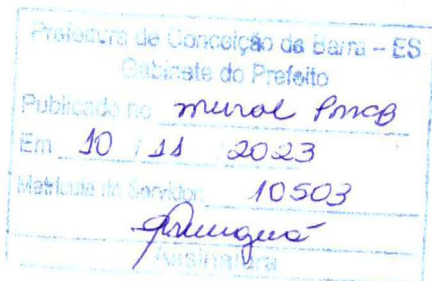 Prefeitura de Conceição da Barra – ES
Gabinete do Prefeito
Publicado no mural PMCB
Em 10 / 11 2023
Matrícula do Servidor 10503
Assinatura